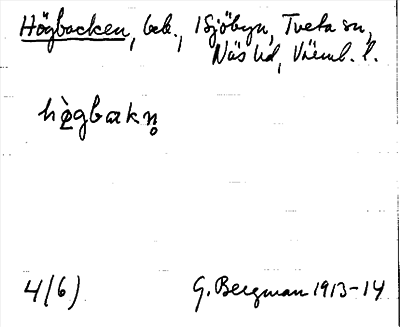 Högbacken, bek., 1 Sjöbyn, Tveta sn,
Näs hd, Värml. l.
hø̀gbakn̥
4/6)
G. Bergman 1913-14